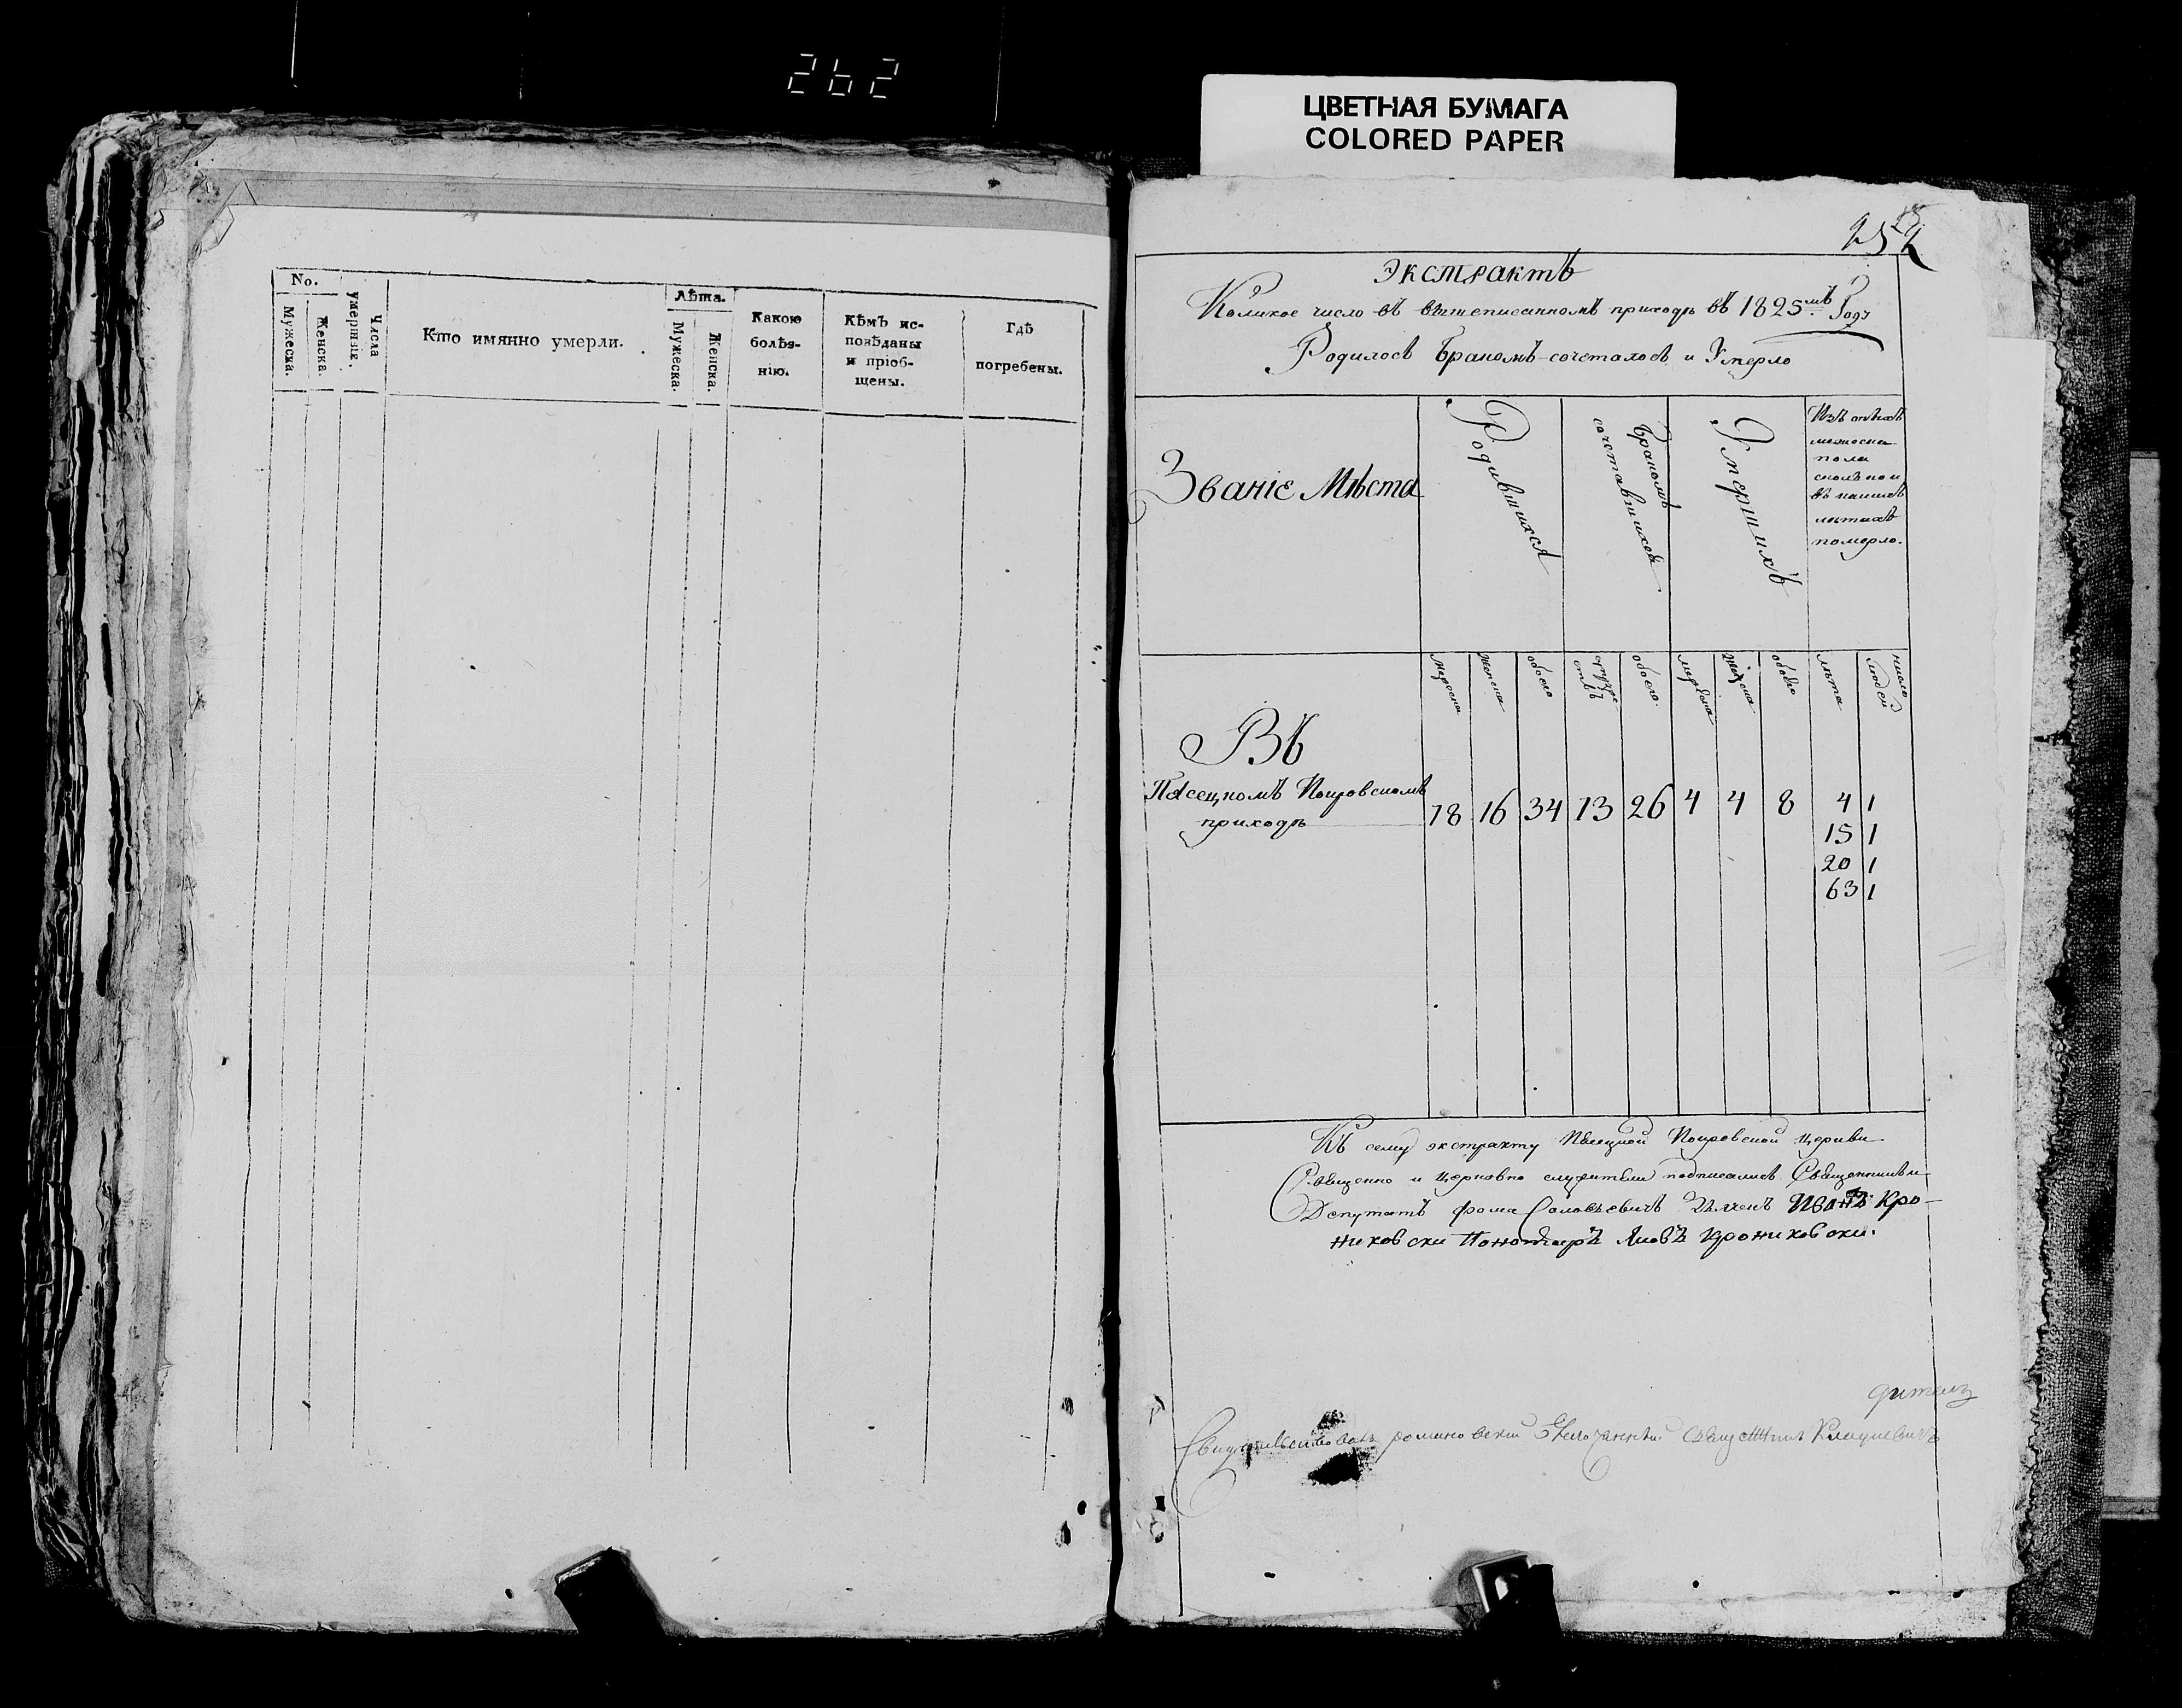 262
ЦВЕТНАЯ БУМАГА
COLORED PAPER
No.
Мужеска.
Женска.
Числа
умершик.
Кто имянно умерли.
Лѣта.
Мужеска.
Женска.
Какою
болѣз-
нію.
Кѣмъ ис-
повѣданы
и пріоб-
щены.
Гдѣ
погребены.
252
Экстрактъ
Коликое число въ вышеписанномъ приходѣ въ 1825мъ Году
Родилось Бракомъ сочеталось и Умерло
Званіе Мѣста
Родившихся
Бракомъ
сочетавшихся
Умершихъ
Изъ онѣхъ
мужеска
пола
сколько и
въ какихъ
лѣтахъ
померло.
мужеска
женска
обоего
супруже
ствъ
обоего
мужеска
женска
обоего
лѣта
число
людей
Въ
Пасецкомъ Покровскомъ
приходѣ
18 16 34 13 26 4 4 8 4 1
15 1
20 1
63 1
Къ сему экстракту Покровской Церкви
Священно и Церковно служители подписались Священникъ и
Депутатъ Фома Соловьевичъ Дьячекъ Иванъ Кро-
никовски Пономарь Яковъ Крониковски.
Свидѣтельствовалъ